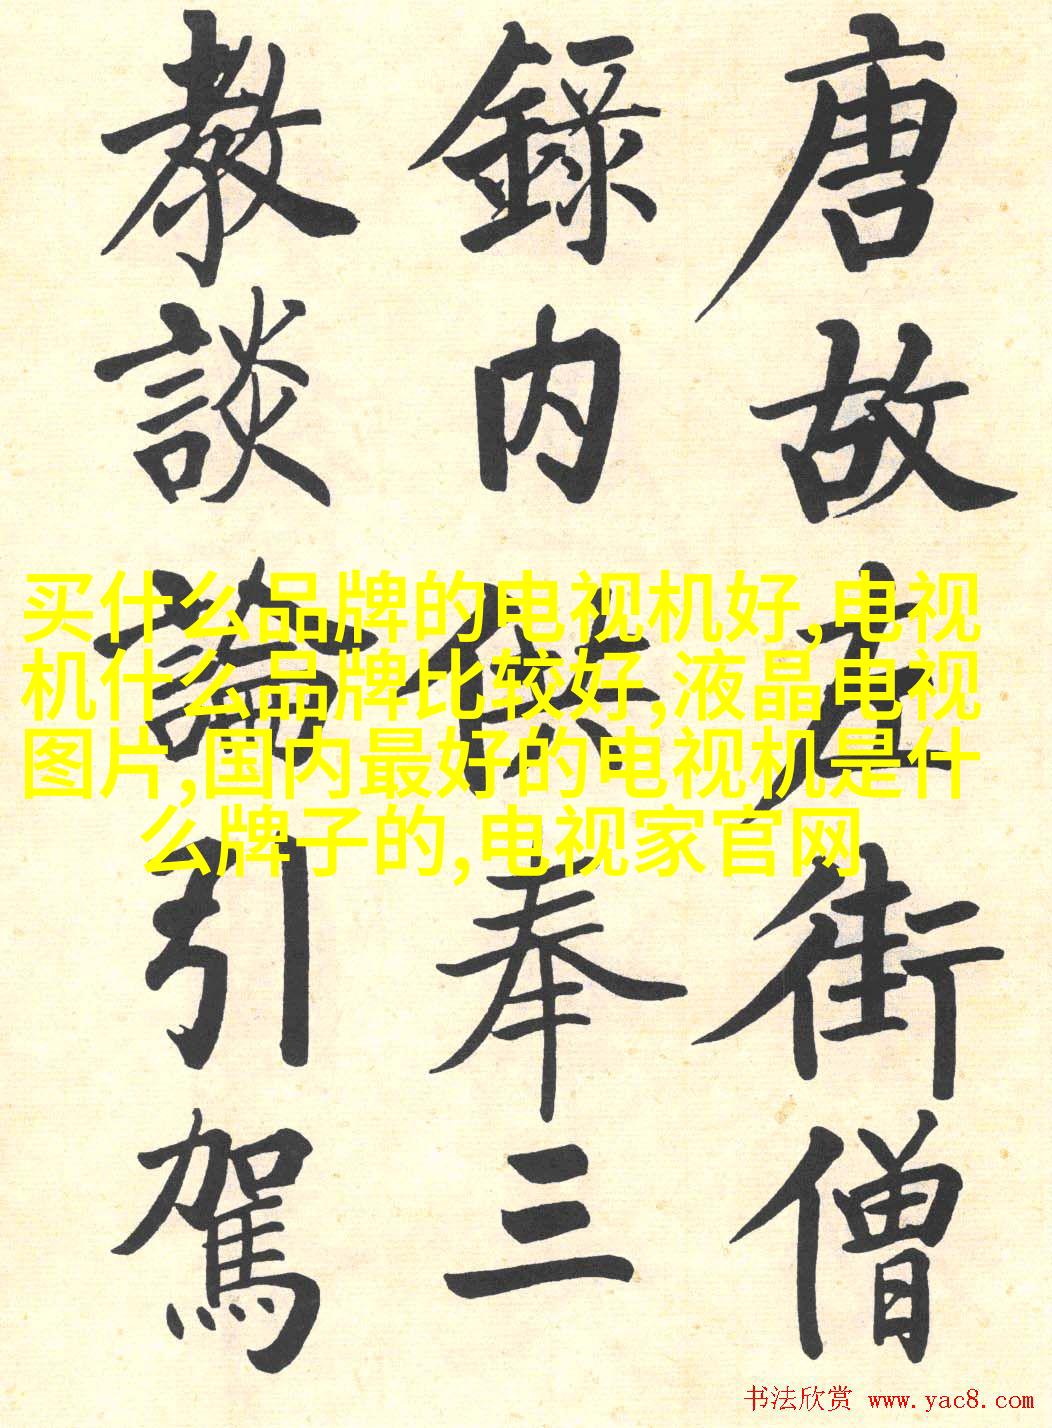 唐故左街僧
錄内供奉三
教談論引駕
买什么品牌的电视机好,电视
机什么品牌比较好,液晶电视
图片,国内最好的电视机是什
么牌子的,电视家官网
书法欣赏 www.yac8.com